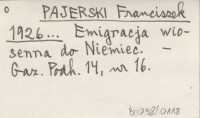 PAJERSKI Franciszek
1926... Emigracja wio-
senna do Niemiec. —
Gaz. Podh. 14, nr 16.